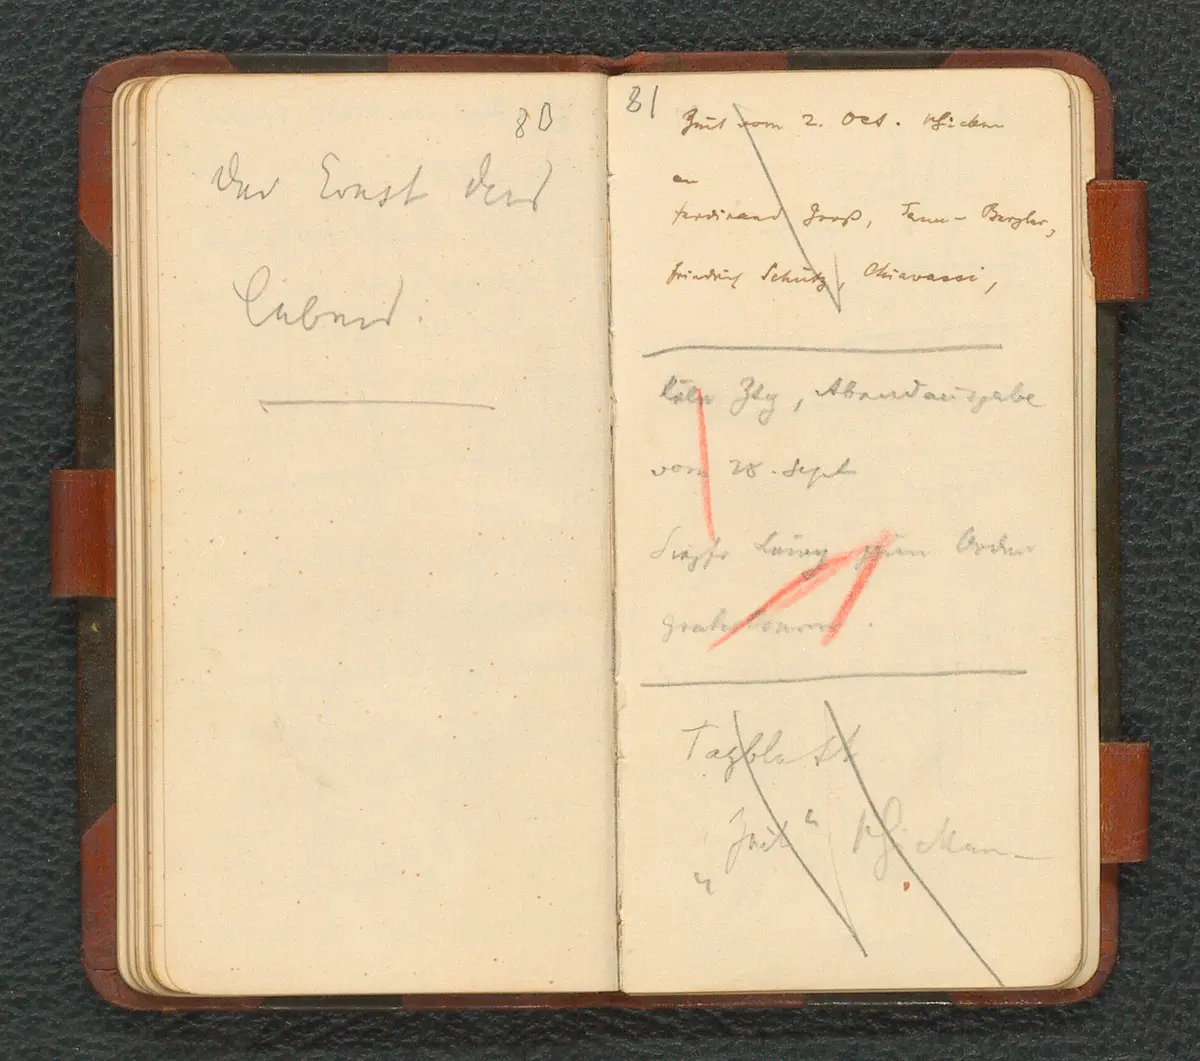 80
Der Ernst des
Lebens.
81
Zeit vom 2. Oct. schicken
an
Ferdinand Groß, Tann-Bergler,
Friedrich Schütz, Chiavacci,
Köln Ztg, Abendausgabe
vom 28. Sept
zum Orden
gratulieren.
Tagblatt
„Zeit“ schicken